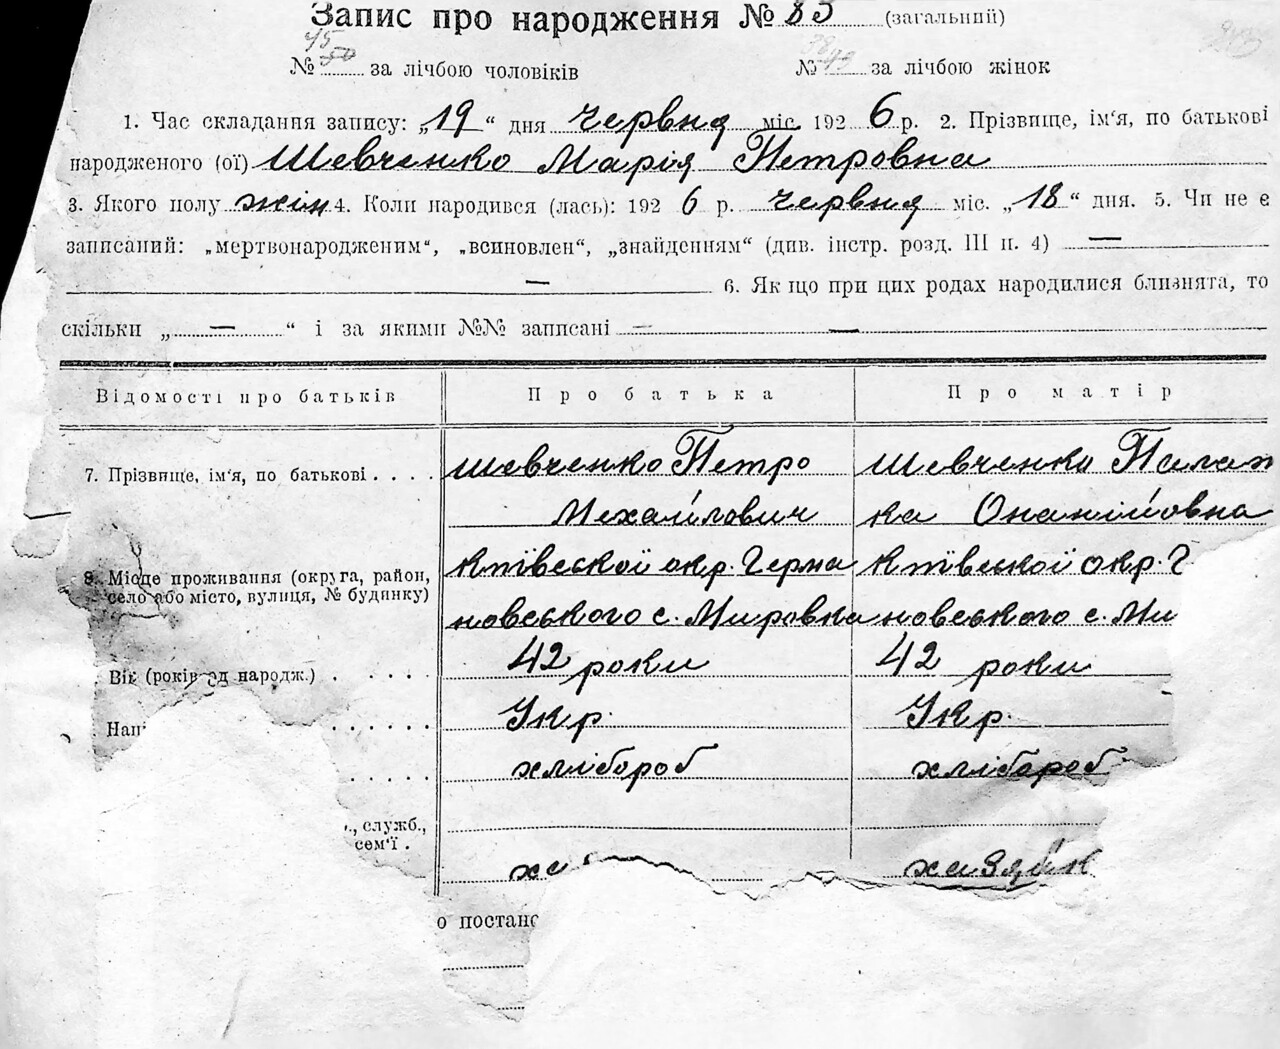 Запис про народження № 83 (загальний)
№ 45 за лічбою чоловіків № 38 за лічбою жінок
1. Час складання запису: „19“ дня червня міс. 1926 р. 2. Прізвище, ім'я, по батькові
народженого (ої) Шевченко Марія Петровна
3. Якого полу жін 4. Коли народився (лась): 1926 р. червня міс. „18“ дня. 5. Чи не є
записаний: „мертвонародженим“, „всиновлен“, „знайденням“ (див. інстр. розд. III п. 4) —
— 6. Як що при цих родах народилися близнята, то
скільки „—“ і за якими №№ записані — —
Відомості про батьків Про батька Про матір
7. Прізвище, ім'я, по батькові . . . . Шевченко Петро Шевченко Пелаж
Михайлович ка Онаніївна
8. Місце проживання (округа, район, Київської окр. Герма Київської окр. Г
село або місто, вулиця, № будинку) новського с. Мировка новського с. Ми
Вік (років од народж.) . . . . . 42 роки 42 роки
Наці . . . . . Укр. Укр.
. . . . . хлібороб хлібороб
., служб.,
сем'ї . ха хазяйк
о постано